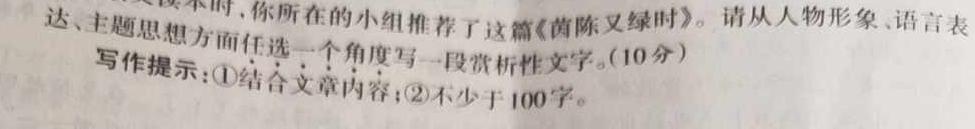 时,你所在的小组推荐了这篇《茵陈又绿时》。请从人物形象、语言表
达、主题思想方面任选一个角度写一段赏析性文字。(10分)
写作提示:①结合文章内容;②不少于100字。